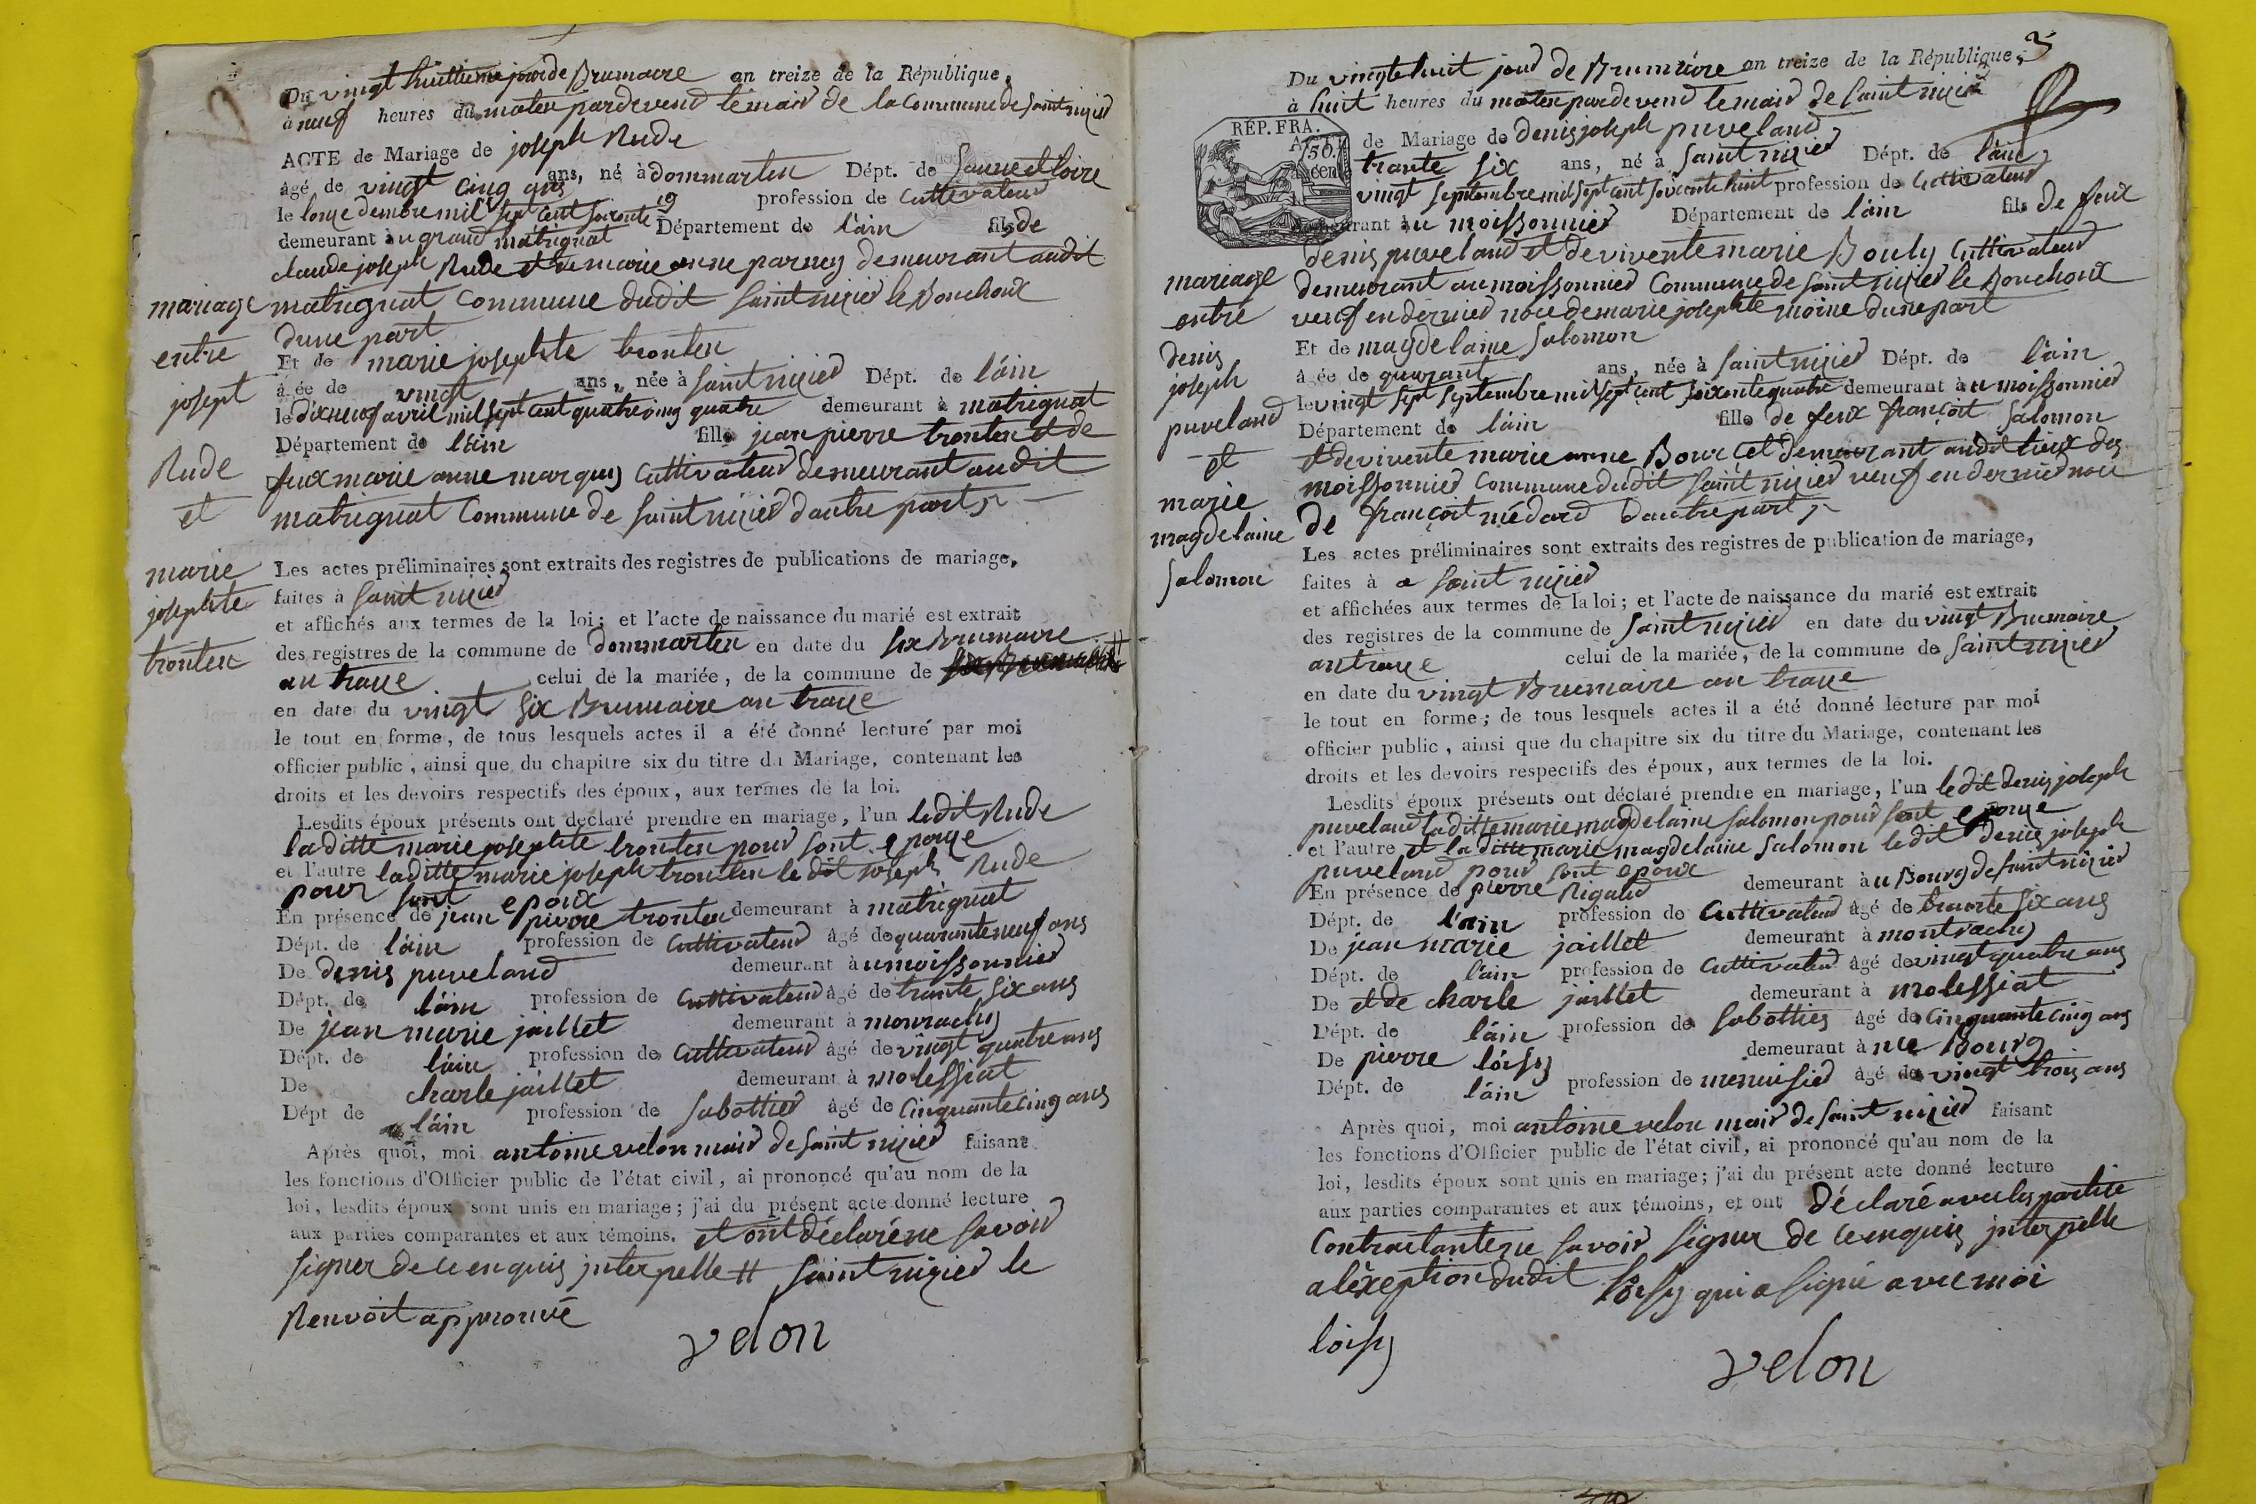 Du vingt huittieme jour de Brumaire an treize de la République,
à neuf heures du maten pardevend le maird de la Commune de saint nizied
ACTE de Mariage de joseph Rude
âgé de vingt cinq ans ans, né à dommarten Dépt. de Saune et loire
le profession de Cultivateud
demeurant au grand matrignat Département de l'ain fils de
claude joseph Rude et de marie anne parney demeurant audit
matrignat Commune dudit saint nizied le Bouchoux
dune part
mariage
entre
josept
Rude
et
marie
josephte
tronten
Et de marie josephte tronten
âgée de vingt ans, née à saint nizied Dépt. de l'ain
le dixneuf avril mil sept cent quatre ving quatre demeurant à matrignat
Département de l'ain fille jean pierre tronten et de
feux marie anne marquis Cultivateud demeurant audit
matrignat Commune de saint nizied dautre part
Les actes préliminaires sont extraits des registres de publications de mariage,
faites à saint nizied
et affichés aux termes de la loi; et l'acte de naissance du marié est extrait
des registres de la commune de dommarten en date du six Brumaire
an traize celui de la mariée, de la commune de #
en date du vingt six Brumaire an traize
le tout en forme, de tous lesquels actes il a été donné lecture par moi
officier public, ainsi que du chapitre six du titre du Mariage, contenant les
droits et les devoirs respectifs des époux, aux termes de la loi.
Lesdits époux présents ont déclaré prendre en mariage, l'un ledit Rude
laditte marie josephte tronten pour sont epouze
et l'autre laditte marie joseph tronten le dit joseph Rude
pour sont epoux
En présence de jean pierre tronten demeurant à matrignat
Dépt. de l'ain profession de Cultivateud âgé de quarante neuf ans
De denis puveland demeurant à umoissonnied
Dépt. de l'ain profession de Cultivateud âgé de trante six ans
De jean marie jaillet demeurant à monrachy
Dépt. de l'ain profession de Cultivateud âgé de vingt quatre ans
De charle jaillet demeurant à molessiat
Dépt de l'ain profession de sabottied âgé de Cinquante cinq ans
Après quoi, moi antoine velon maird de saint nizied faisant
les fonctions d'Officier public de l'état civil, ai prononcé qu'au nom de la
loi, lesdits époux sont unis en mariage; j'ai du présent acte donné lecture
aux parties comparantes et aux témoins. et ont déclaré ne savoird
signer de ce enquis jnterpelle # saint nizied le
Renvoit approuvé
velon
3
Du vingte huit jour de Brumaire an treize de la République,
à huit heures du maten pardevend le maird de saint nizied
RÉP. FRA.
50.
cent
de Mariage de denis joseph puveland
trante six ans, né à saint nizied Dépt. de l'ain
vingt septembre mil sept cent soixante huit profession de Cultivateud
demeurant au moissonnied Département de l'ain fils de feux
denis puveland et de vivente marie Bouly Cultivateud
demeurant au moissonnied Commune de saint nizied le Bouchoux
veuf en dernied noce de marie josephte moine dune part
mariage
entre
denis
joseph
puveland
et
marie
magdelaine
salomon
Et de magdelaine salomon
âgée de quarant ans, née à saint nizied Dépt. de l'ain
le vingt sept septembre mil sept cent soixante quatre demeurant à u moissonnied
Département de l'ain fille de feux françoit salomon
et de vivente marie anne Bourcet demeurant audit lieux des
moissonnied Commune dudit saint nizied veuf en dernied noce
de françoit médard dautre part
Les actes préliminaires sont extraits des registres de publication de mariage,
faites à a saint nizied
et affichées aux termes de la loi; et l'acte de naissance du marié est extrait
des registres de la commune de saint nizied en date du vingt Brumaire
an traize celui de la mariée, de la commune de saint nizied
en date du vingt Brumaire an traize
le tout en forme; de tous lesquels actes il a été donné lecture par moi
officier public, ainsi que du chapitre six du titre du Mariage, contenant les
droits et les devoirs respectifs des époux, aux termes de la loi.
Lesdits époux présents ont déclaré prendre en mariage, l'un ledit denis joseph
puveland laditte marie magdelaine salomon pour sont epouze
et l'autre et la ditte marie magdelaine salomon ledit denis joseph
puveland pour sont epoux
En présence de pierre Rigaud demeurant à u Bourg de saint nizied
Dépt. de l'ain profession de Cultivateud âgé de trante six ans
De jean marie jaillet demeurant à montrachy
Dépt. de l'ain profession de Cultivateud âgé de vingt quatre ans
De et de charle jaillet demeurant à molessiat
Dépt. de l'ain profession de sabotties âgé de Cinquante cinq ans
De pierre loisy demeurant à ue Bourg
Dépt. de l'ain profession de menuisied âgé de vingt trois ans
Après quoi, moi antoine velon maird de saint nizied faisant
les fonctions d'Officier public de l'état civil, ai prononcé qu'au nom de la
loi, lesdits époux sont unis en mariage; j'ai du présent acte donné lecture
aux parties comparantes et aux témoins, et ont déclaré avec les partise
Contractante ne savoird signer de ce enquis jnterpelle
a l'exeption dudit loisy qui a signé avec moi
loisy
velon